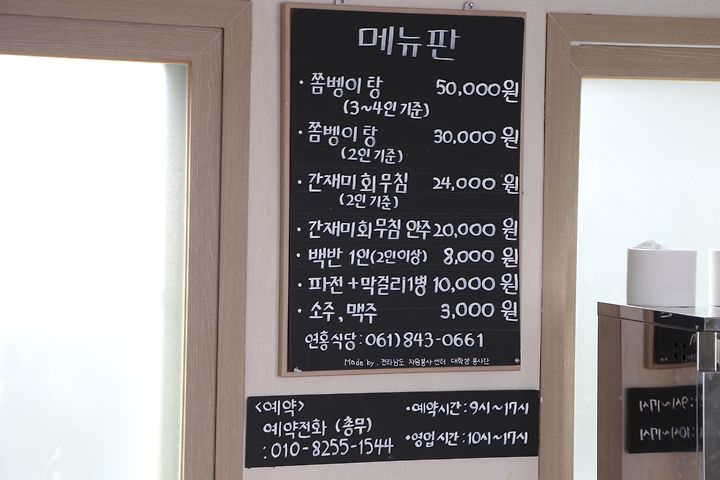 메뉴판
· 쫌벵이 탕 50,000원
(3~4인 기준)
· 쫌벵이 탕 30,000원
(2인 기준)
· 간재미회무침 24,000 원
(2인 기준)
· 간재미회무침 안주 20,000 원
· 백반 1인(2인이상) 8,000 원
· 파전 + 막걸리1병 10,000 원
· 소주, 맥주 3,000 원
연홍식당 : 061)843-0661
Made by . 전라남도 자원봉사센터 대학생 봉사단
<예약> · 예약시간 : 9시~17시
예약전화 (총무)
: 010-8255-1544 · 영업시간 : 10시~17시